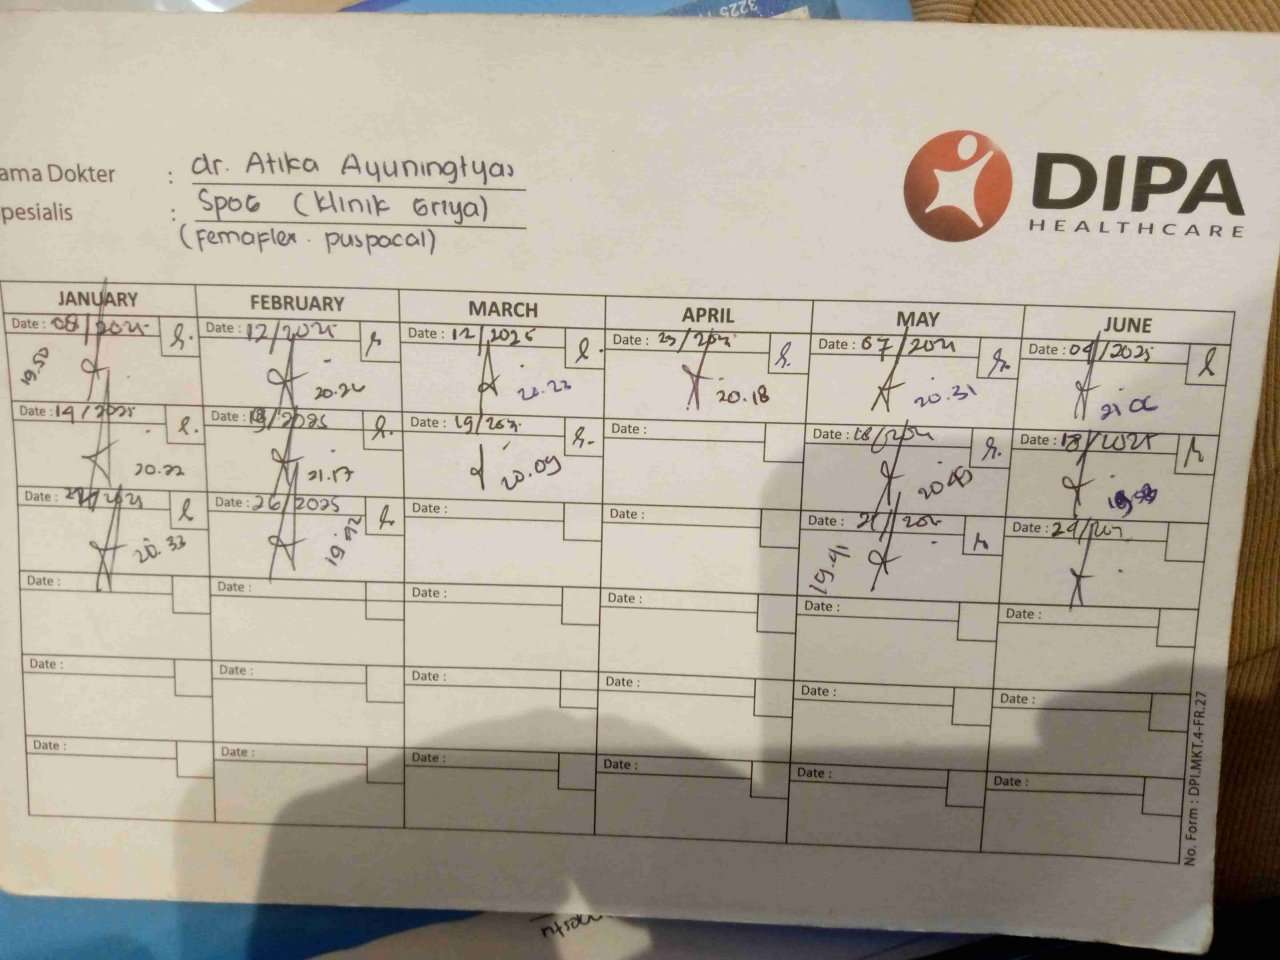 3225
ama Dokter : dr. Atika Ayuningtyas
pesialis : SpOG (Klinik Griya)
(Femaflex. puspacal)
DIPA
HEALTHCARE
JANUARY FEBRUARY MARCH APRIL MAY JUNE
Date : 08/2025 Date : 12/2025 Date : 12/2025 Date : 23/202 Date : 07/2025 Date : 04/2025
19.50 20.22 20.18 20.31 21.06
Date : 14/2025 Date : 19/2025 Date : 19/202 Date : Date : Date : 18/2025
20.22 21.17 20.09
Date : Date : 26/2025 Date : Date : Date : 21/202 Date : 24/202
20.33 19.42 19.41
Date : Date : Date : Date : Date : Date :
Date : Date : Date : Date : Date : Date :
Date : Date : Date : Date : Date : Date :
No. Form : DPI.MKT.4-FR.27